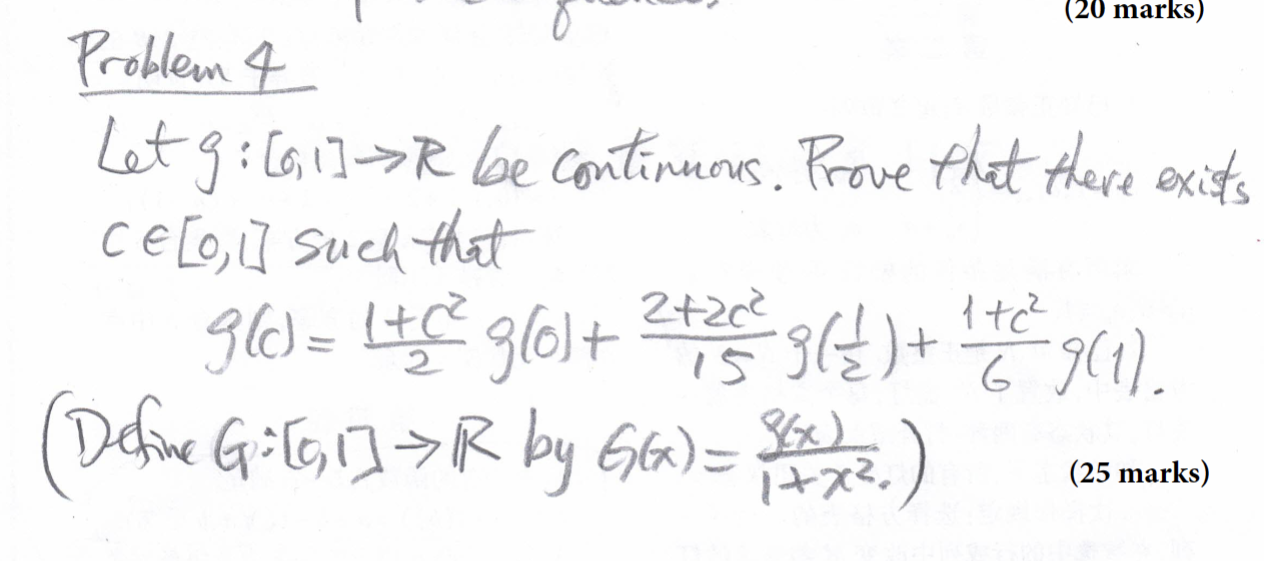 (20 marks)
Problem 4
Let g : [0,1] → ℝ be continuous. Prove that there exists
c ∈ [0,1] such that
g(c) = \frac{1+c²}{2} g(0) + \frac{2+2c²}{15} g(\frac{1}{2}) + \frac{1+c²}{6} g(1).
(Define G : [0,1] → ℝ by G(x) = \frac{g(x)}{1+x²}.)
(25 marks)